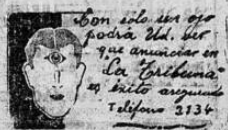 Con solo un ojo
podrá Ud. ver
que anunciar en
"La Tribuna"
es éxito asegurado
Teléfono 3134